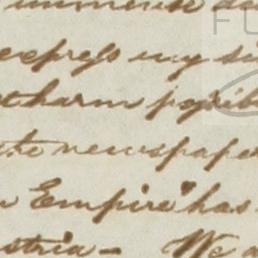 immense
express my
harm possib
the newspape
Empire" has
stria — We a